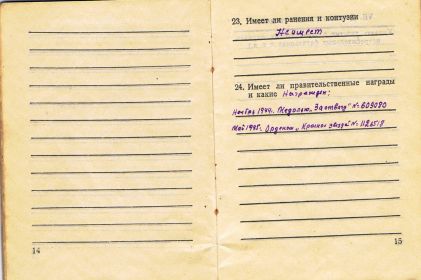 14
23. Имеет ли ранения и контузии
24. Имеет ли правительственные награды
и какие Награжден:
Ноябрь 1944. Медалью "За отвагу" № 609080
Май 1945г. Орденом "Красная звезда" №
15